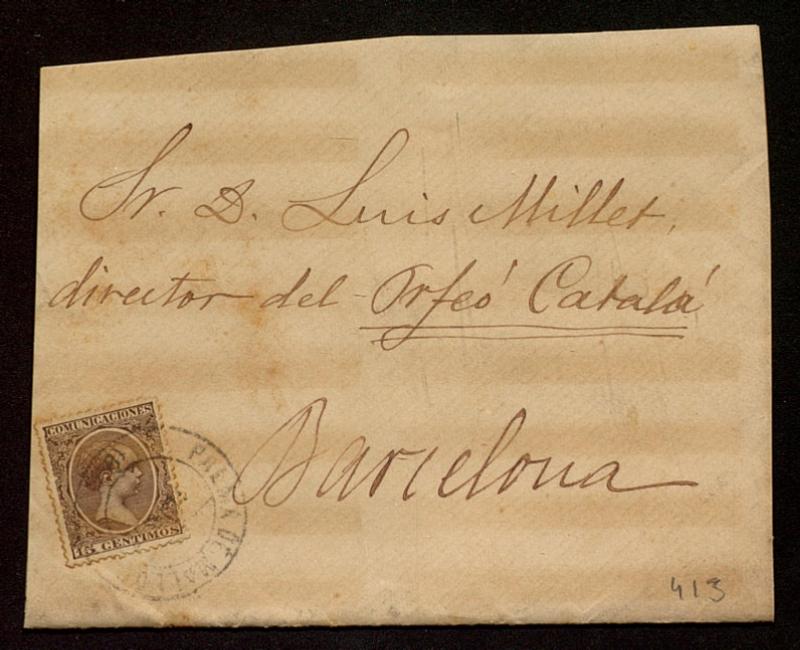 Sr. D. Luis Millet,
director del Orfeó Catalá
Barcelona
COMUNICACIONES
15 CENTIMOS
PALMA DE MALLO
413